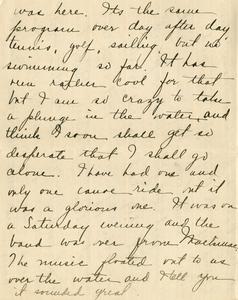 was here. Its the same
program over day after day,
tennis, golf, sailing, but no
swimming so far. It has
been rather cool for that
but I am so crazy to take
a plunge in the water and
think I soon shall get so
desperate that I shall go
alone. I have had one and
only one canoe ride but it
was a glorious one. It was on
a Saturday evening and the
band was over from Mackinac
The music floated out to us
over the water and I tell you
it sounded great